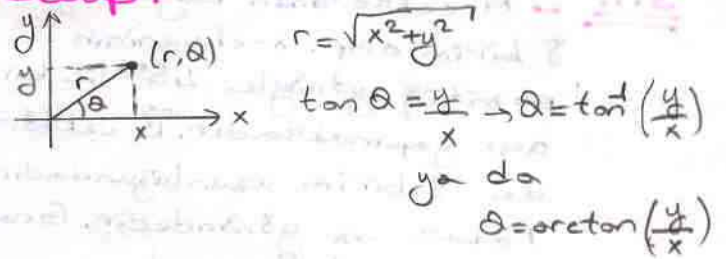 y
y (r,θ)
r θ
x x
r=√x²+y²
tan θ = y/x → θ=tan⁻¹(y/x)
ya da
θ=arctan(y/x)